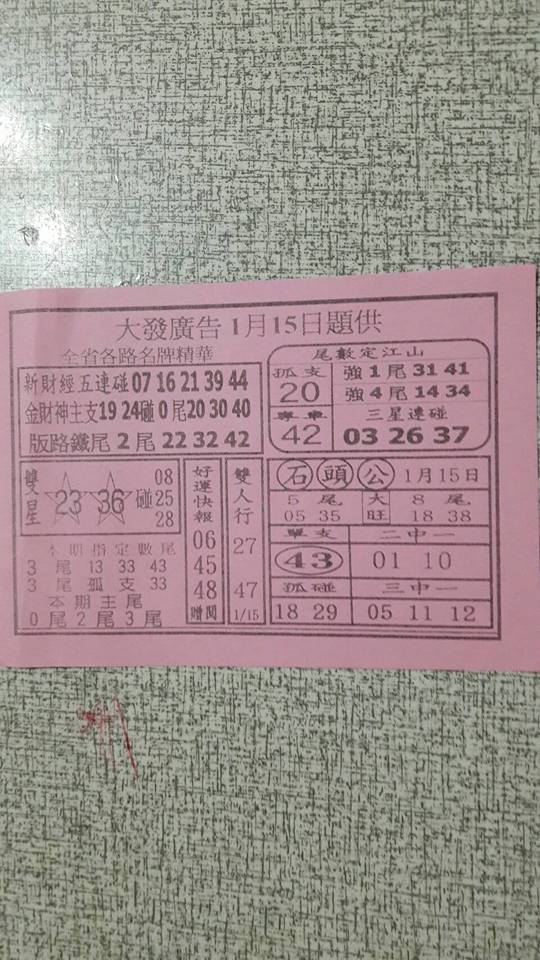 大發廣告1月15日題供
全省各路名牌精華
新財經五連碰07 16 21 39 44
金財神主支19 24碰 0 尾20 30 40
版路鐵尾 2 尾 22 32 42
尾數定江山
孤支
20
專車
42
強 1 尾 31 41
強 4 尾 14 34
三星連碰
03 26 37
雙星
23 36
碰
08
25
28
本期指定數尾
3 尾 13 33 43
3 尾 孤支 33
本期主尾
0 尾 2 尾 3 尾
好運快報
06
45
48
贈閱
雙人行
27
47
1/15
石頭公 1月15日
5 尾
05 35
大旺
8 尾
18 38
單支
43
二中一
01 10
孤碰
18 29
三中一
05 11 12